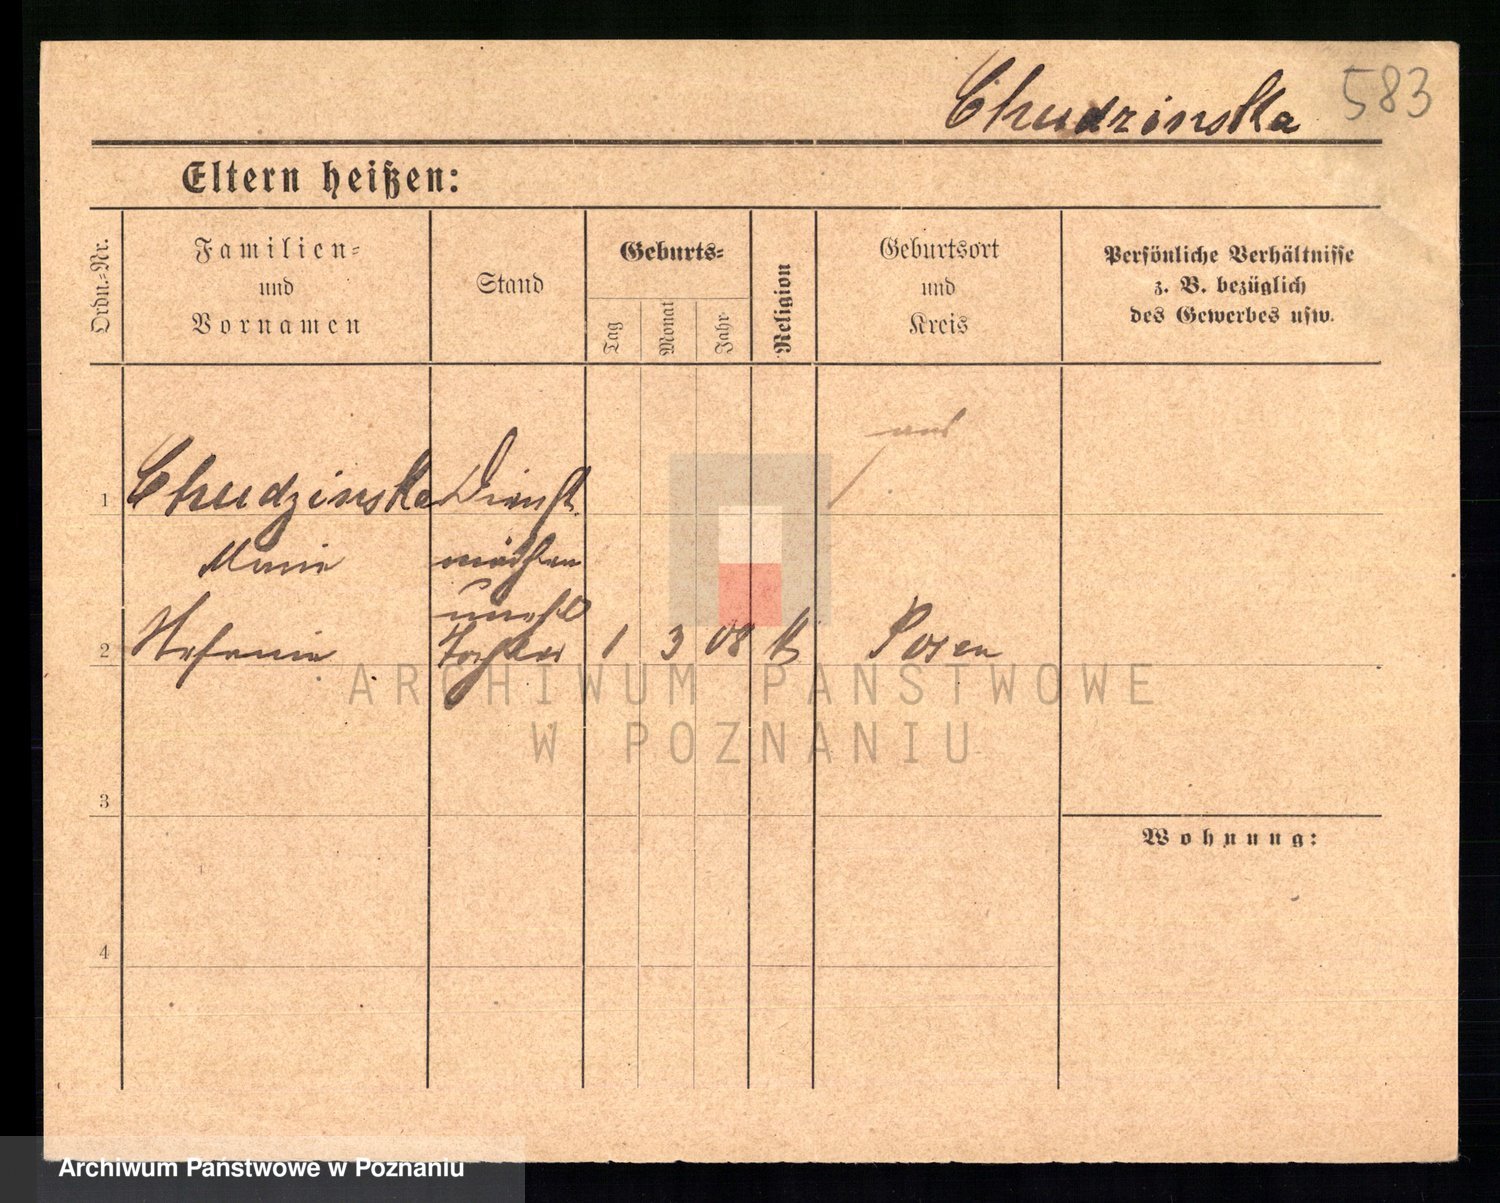 Chudzinska 583
Eltern heißen:
Ordn.-Nr.
Familien-
und
Vornamen
Stand
Geburts-
Tag
Monat
Jahr
Religion
Geburtsort
und
Kreis
Persönliche Verhältnisse
z. B. bezüglich
des Gewerbes usw.
1 Chudzinska Dienst
Marie mädchen
unehl
2 Stefanie Tochter 1 3 08 k Posen
3
4
Wohnung:
ARCHIWUM PAŃSTWOWE
W POZNANIU
Archiwum Państwowe w Poznaniu